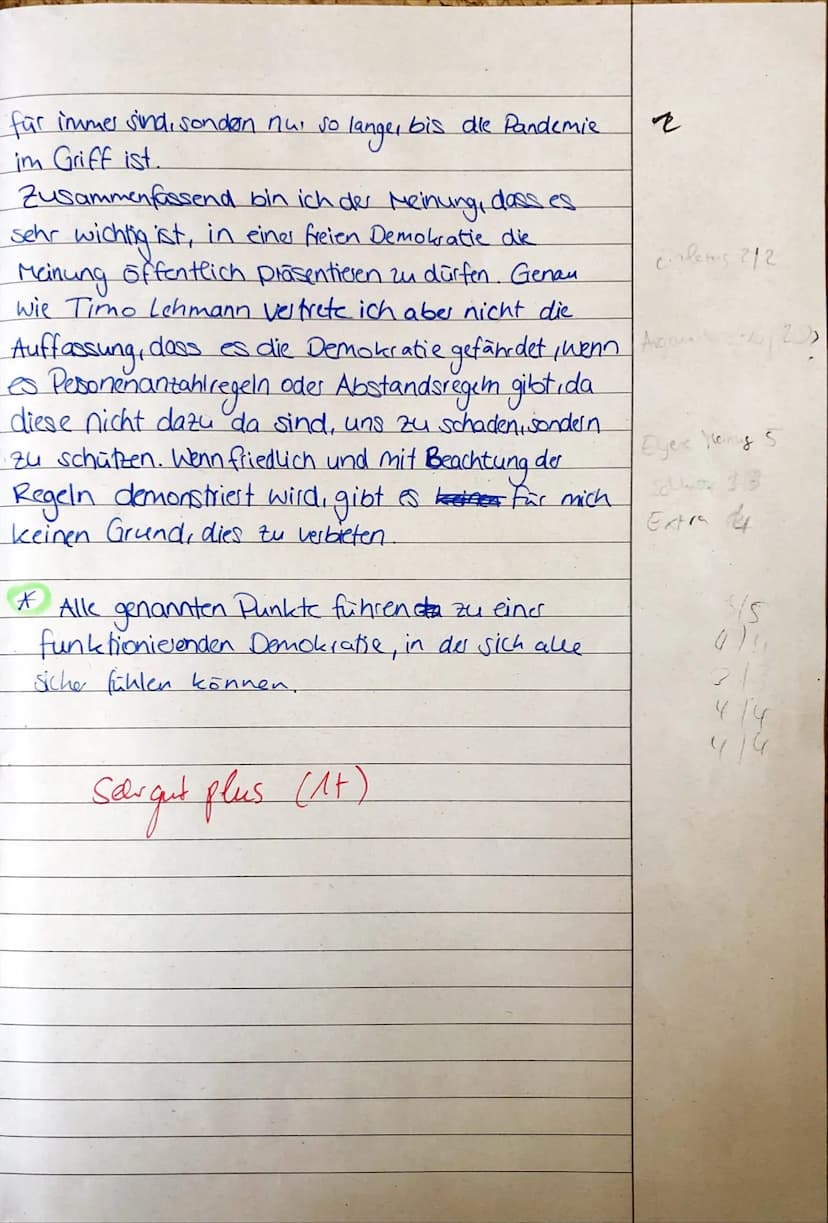 für immer sind, sondern nur so lange, bis die Pandemie
im Griff ist.
Zusammenfassend bin ich der Meinung, dass es
sehr wichtig ist, in einer freien Demokratie die
Meinung öffentlich präsentieren zu dürfen. Genau
wie Timo Lehmann vertrete ich aber nicht die
Auffassung, dass es die Demokratie gefährdet, wenn
es Personenanzahlregeln oder Abstandsregeln gibt, da
diese nicht dazu da sind, uns zu schaden, sondern
zu schützen. Wenn friedlich und mit Beachtung der
Regeln demonstriert wird, gibt es für mich
keinen Grund, dies zu verbieten.
* Alle genannten Punkte führen zu einer
funktionierenden Demokratie, in der sich alle
sicher fühlen können.
Sehr gut plus (1+)
2/2
5
Extra 4
4/4
4/4